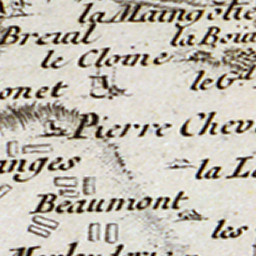 la Maingotie
Breual
la Roua
le Cloine
onet
le G.d
Pierre Chev
anges
la L
Beaumont
les